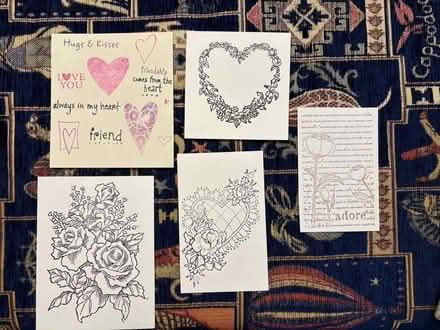 Hugs & Kisses
LOVE
YOU
friendship
comes from the
heart
always in my heart
friend
adore
Cappucc